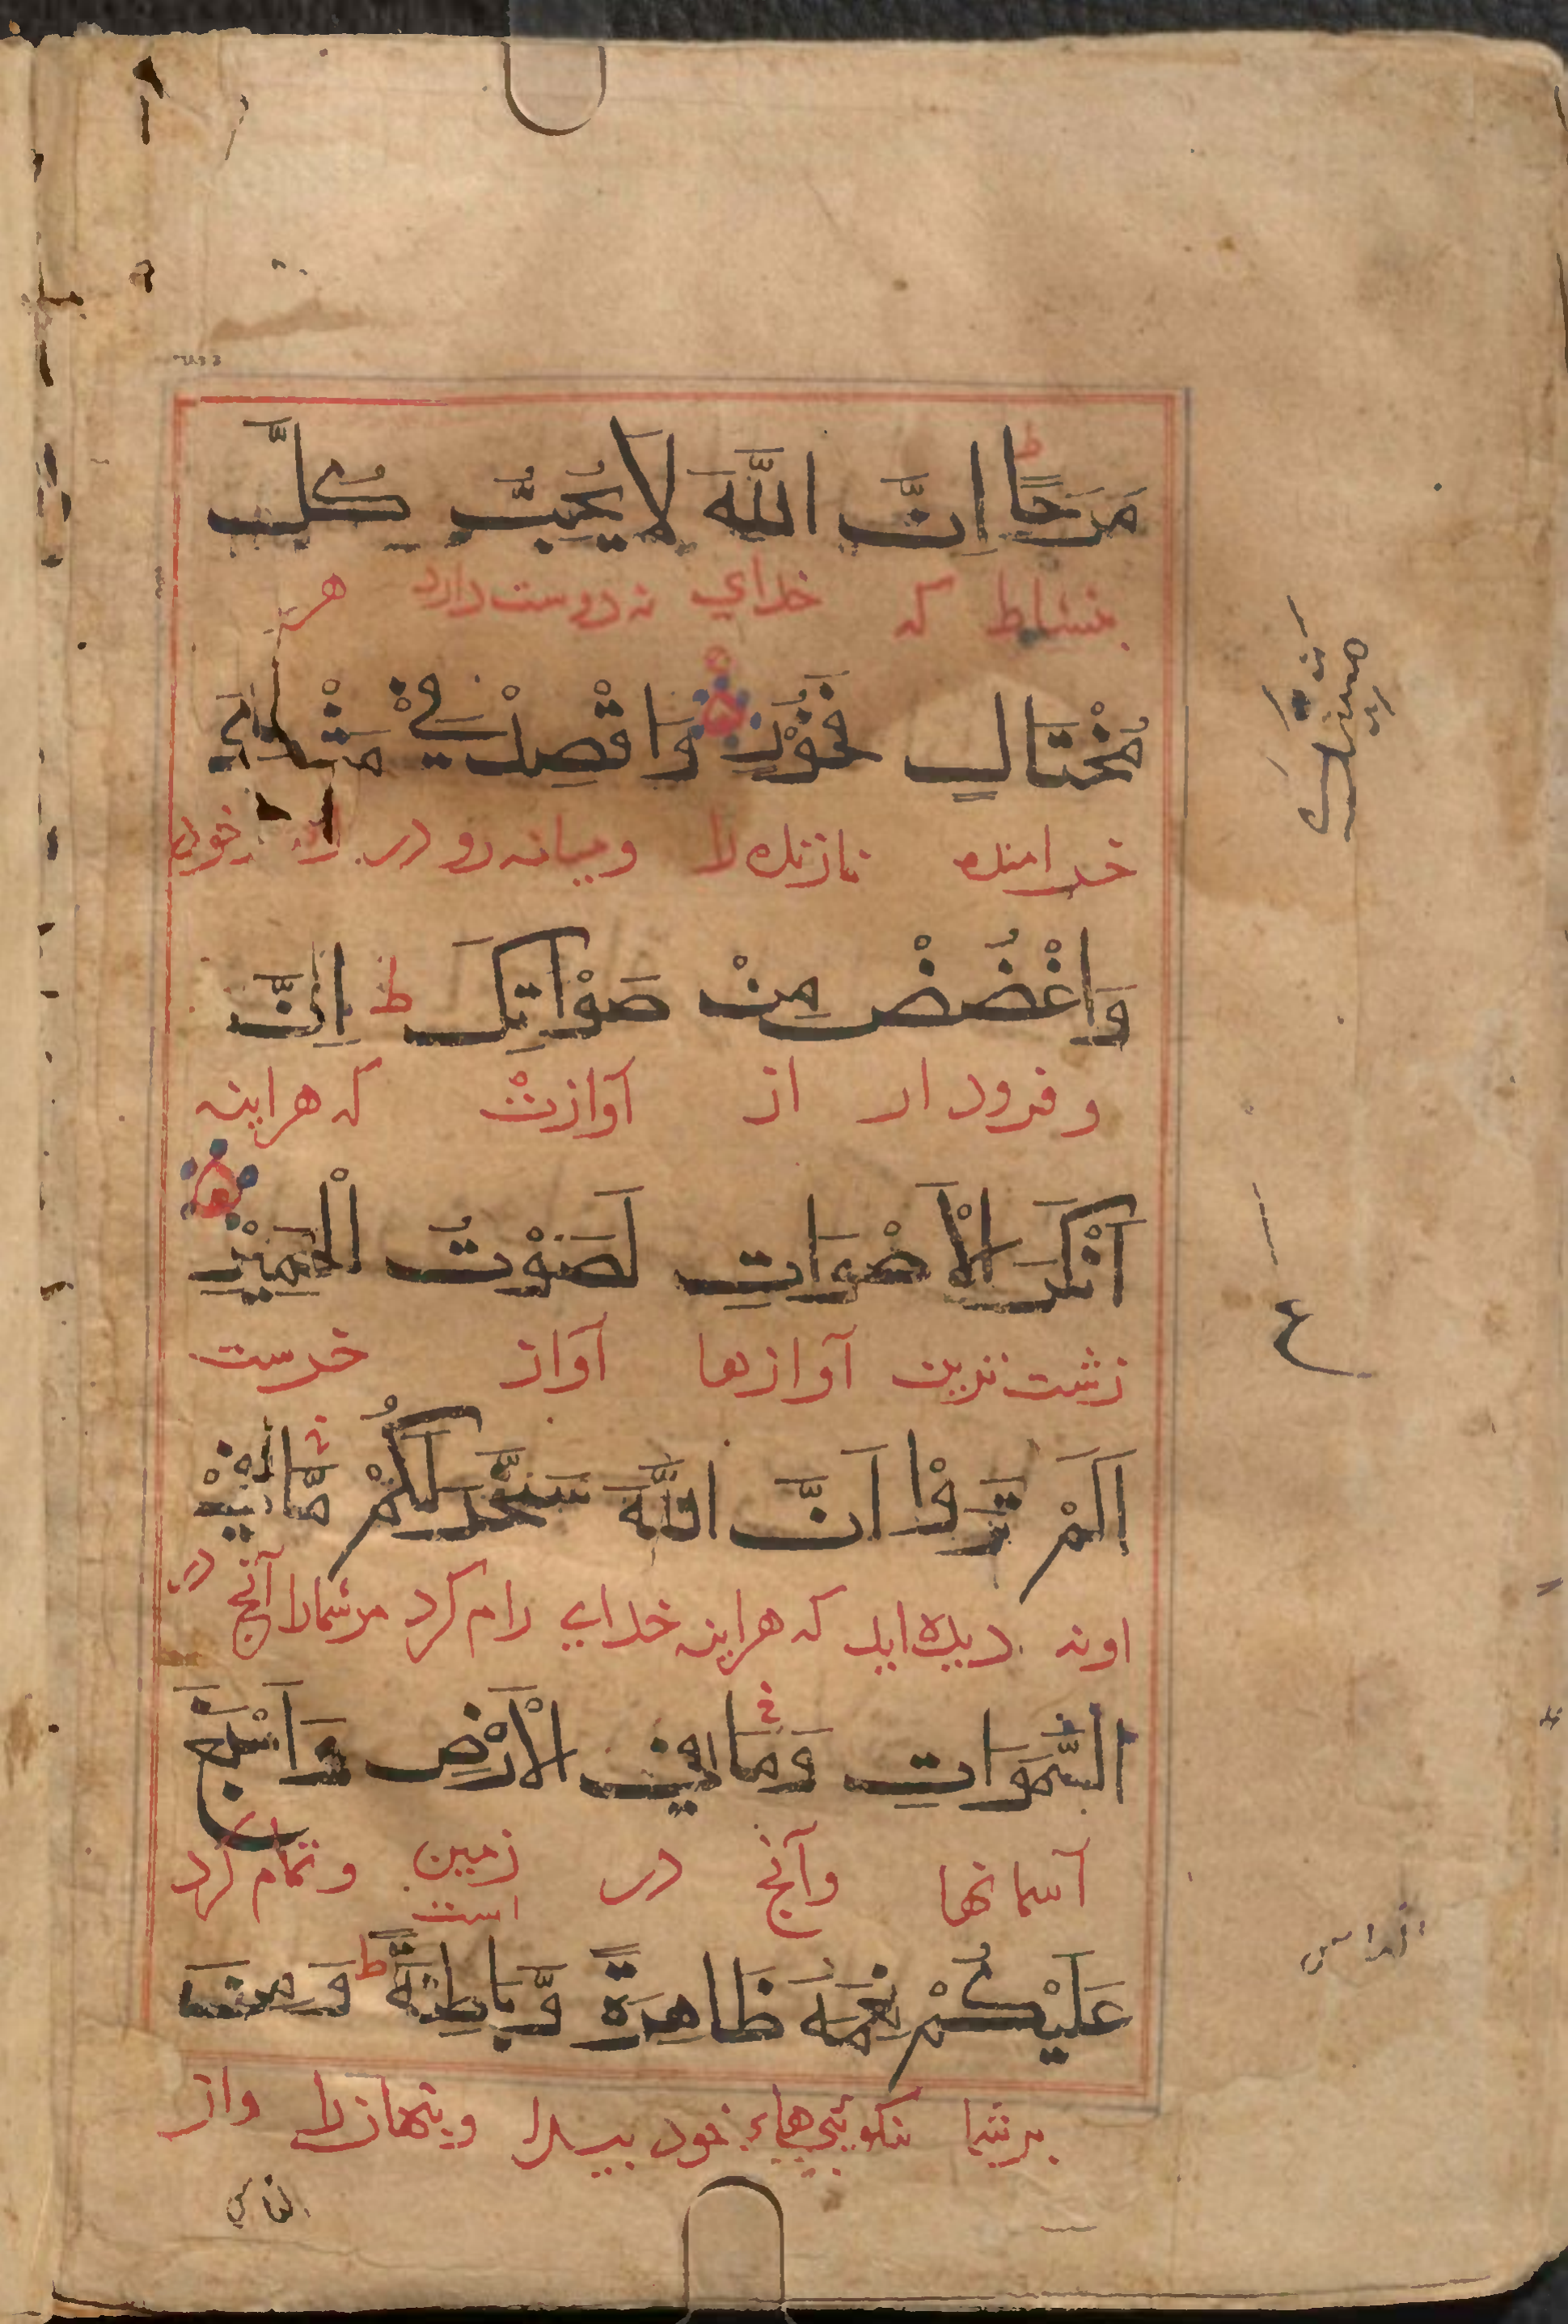 مَرَحًا ط اِنَّ اللّٰهَ لَا يُحِبُّ كُلَّ
بنشاط که خدای نه دوست دارد هر
مُخْتَالٍ فَخُوْرٍ وَاقْصِدْ فِيْ مَشْيِكَ
خرامنده نازنده را و میانه رو در راه خود
وَاغْضُضْ مِنْ صَوْتِكَ ط اِنَّ
و فرود ار از آوازت که هراینه
اَنْكَرَ الْاَصْوَاتِ لَصَوْتُ الْحَمِيْرِ
زشت ترین آوازها آواز خرست
اَلَمْ تَرَوْا اَنَّ اللّٰهَ سَخَّرَ لَكُمْ مَّا فِيْ
اونه دیده اید که هراینه خدای رام کرد مرشمارا آنچ در
السَّمَوَاتِ وَمَا فِي الْاَرْضِ وَاَسْبَغَ
آسمانها وآنچ در زمین است وتمام کرد
عَلَيْكُمْ نِعَمَهُ ظَاهِرَةً وَّبَاطِنَةً ط وَمِنَ
برشما نیکوئی هاء خود پیدا وپنهانرا واز
ع
الناس